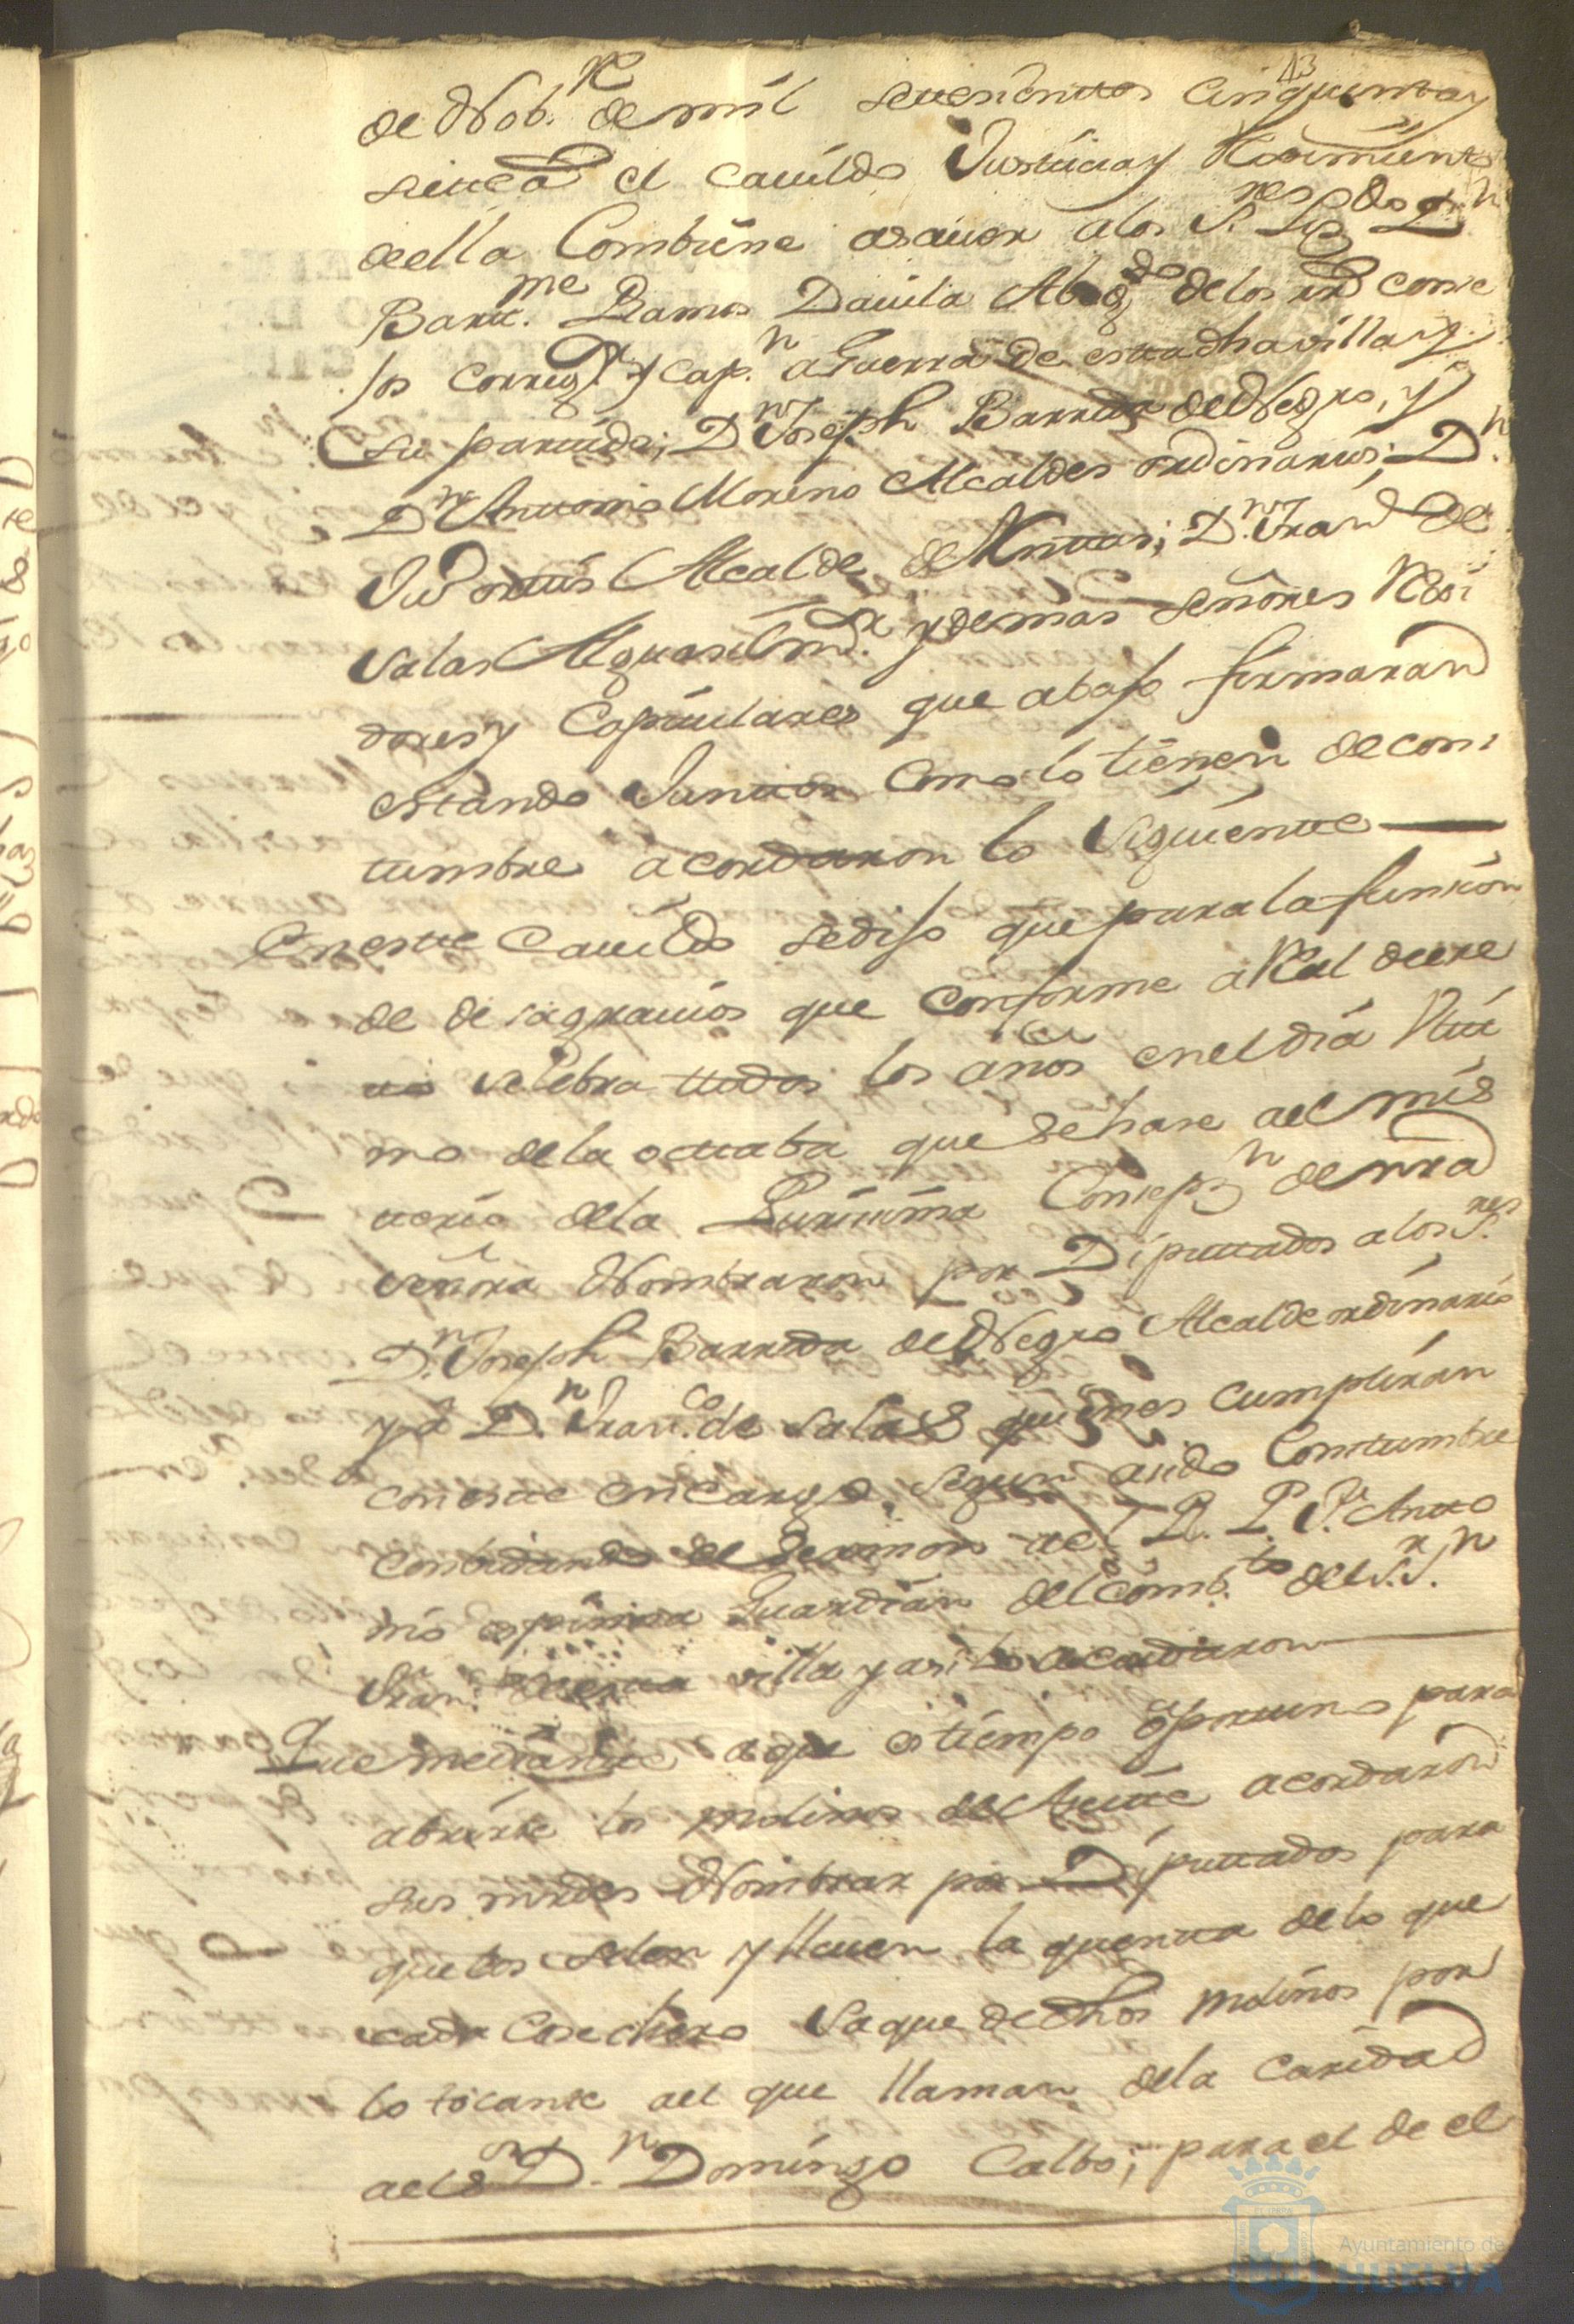 43
de Nob.re de mil setesientos cinquenta y
siete a el cauildo Justicia y Reximiento
de ella Combiene asauer a los S.res Lizdo Dn
Bartt.me Ramos Dauila Abogdo de los Rs conse
jos correg.r y cap.n a Guerra de esta dha villa y
su partido; D.n Joseph Barreda del Negro, y
D.n Antonio Moreno Alcaldes ordinarios; D.n
Alcalde de D.n Fran.co de
Salas Alguasil m.r y demas señores Rexi
dores y Capitulares que abajo firmaran
estando Juntos Como lo tienen de cos
tumbre acordaron lo siguiente
En este Cauildo se dijo que para la funsion
de desagrauios que conforme a Real decre
to selebra ttodos los años en el dia ulti
mo de la octtaba que se hase ael mis
terio de la Purissima Consepzn de nra
señora Nombraron por Diputtados a los S.res
D.n Joseph Barreda del Negro Alcalde ordinario
y a D.n Fran.co de Salas quienes cumpliran
con este encargo segun a sido Constumbre
combidando el sermon ael R. P. F. Antto
nio espinosa Guardian del comb.to del S.r S.n
Fran.co de esta villa y asi lo acordaron
Que mediante a que es tiempo oportuno para
abrirse los molinos de Aseite acordaron
sus mrdes Nombrar por Diputtados para
que los selen y lleuen la quenta de lo que
cada Cosechero saque de dhos molinos por
lo tocante ael que llaman de la Caridad
ael S.or D.n Domingo Calbo; para el de el
Ayuntamiento de
HUELVA